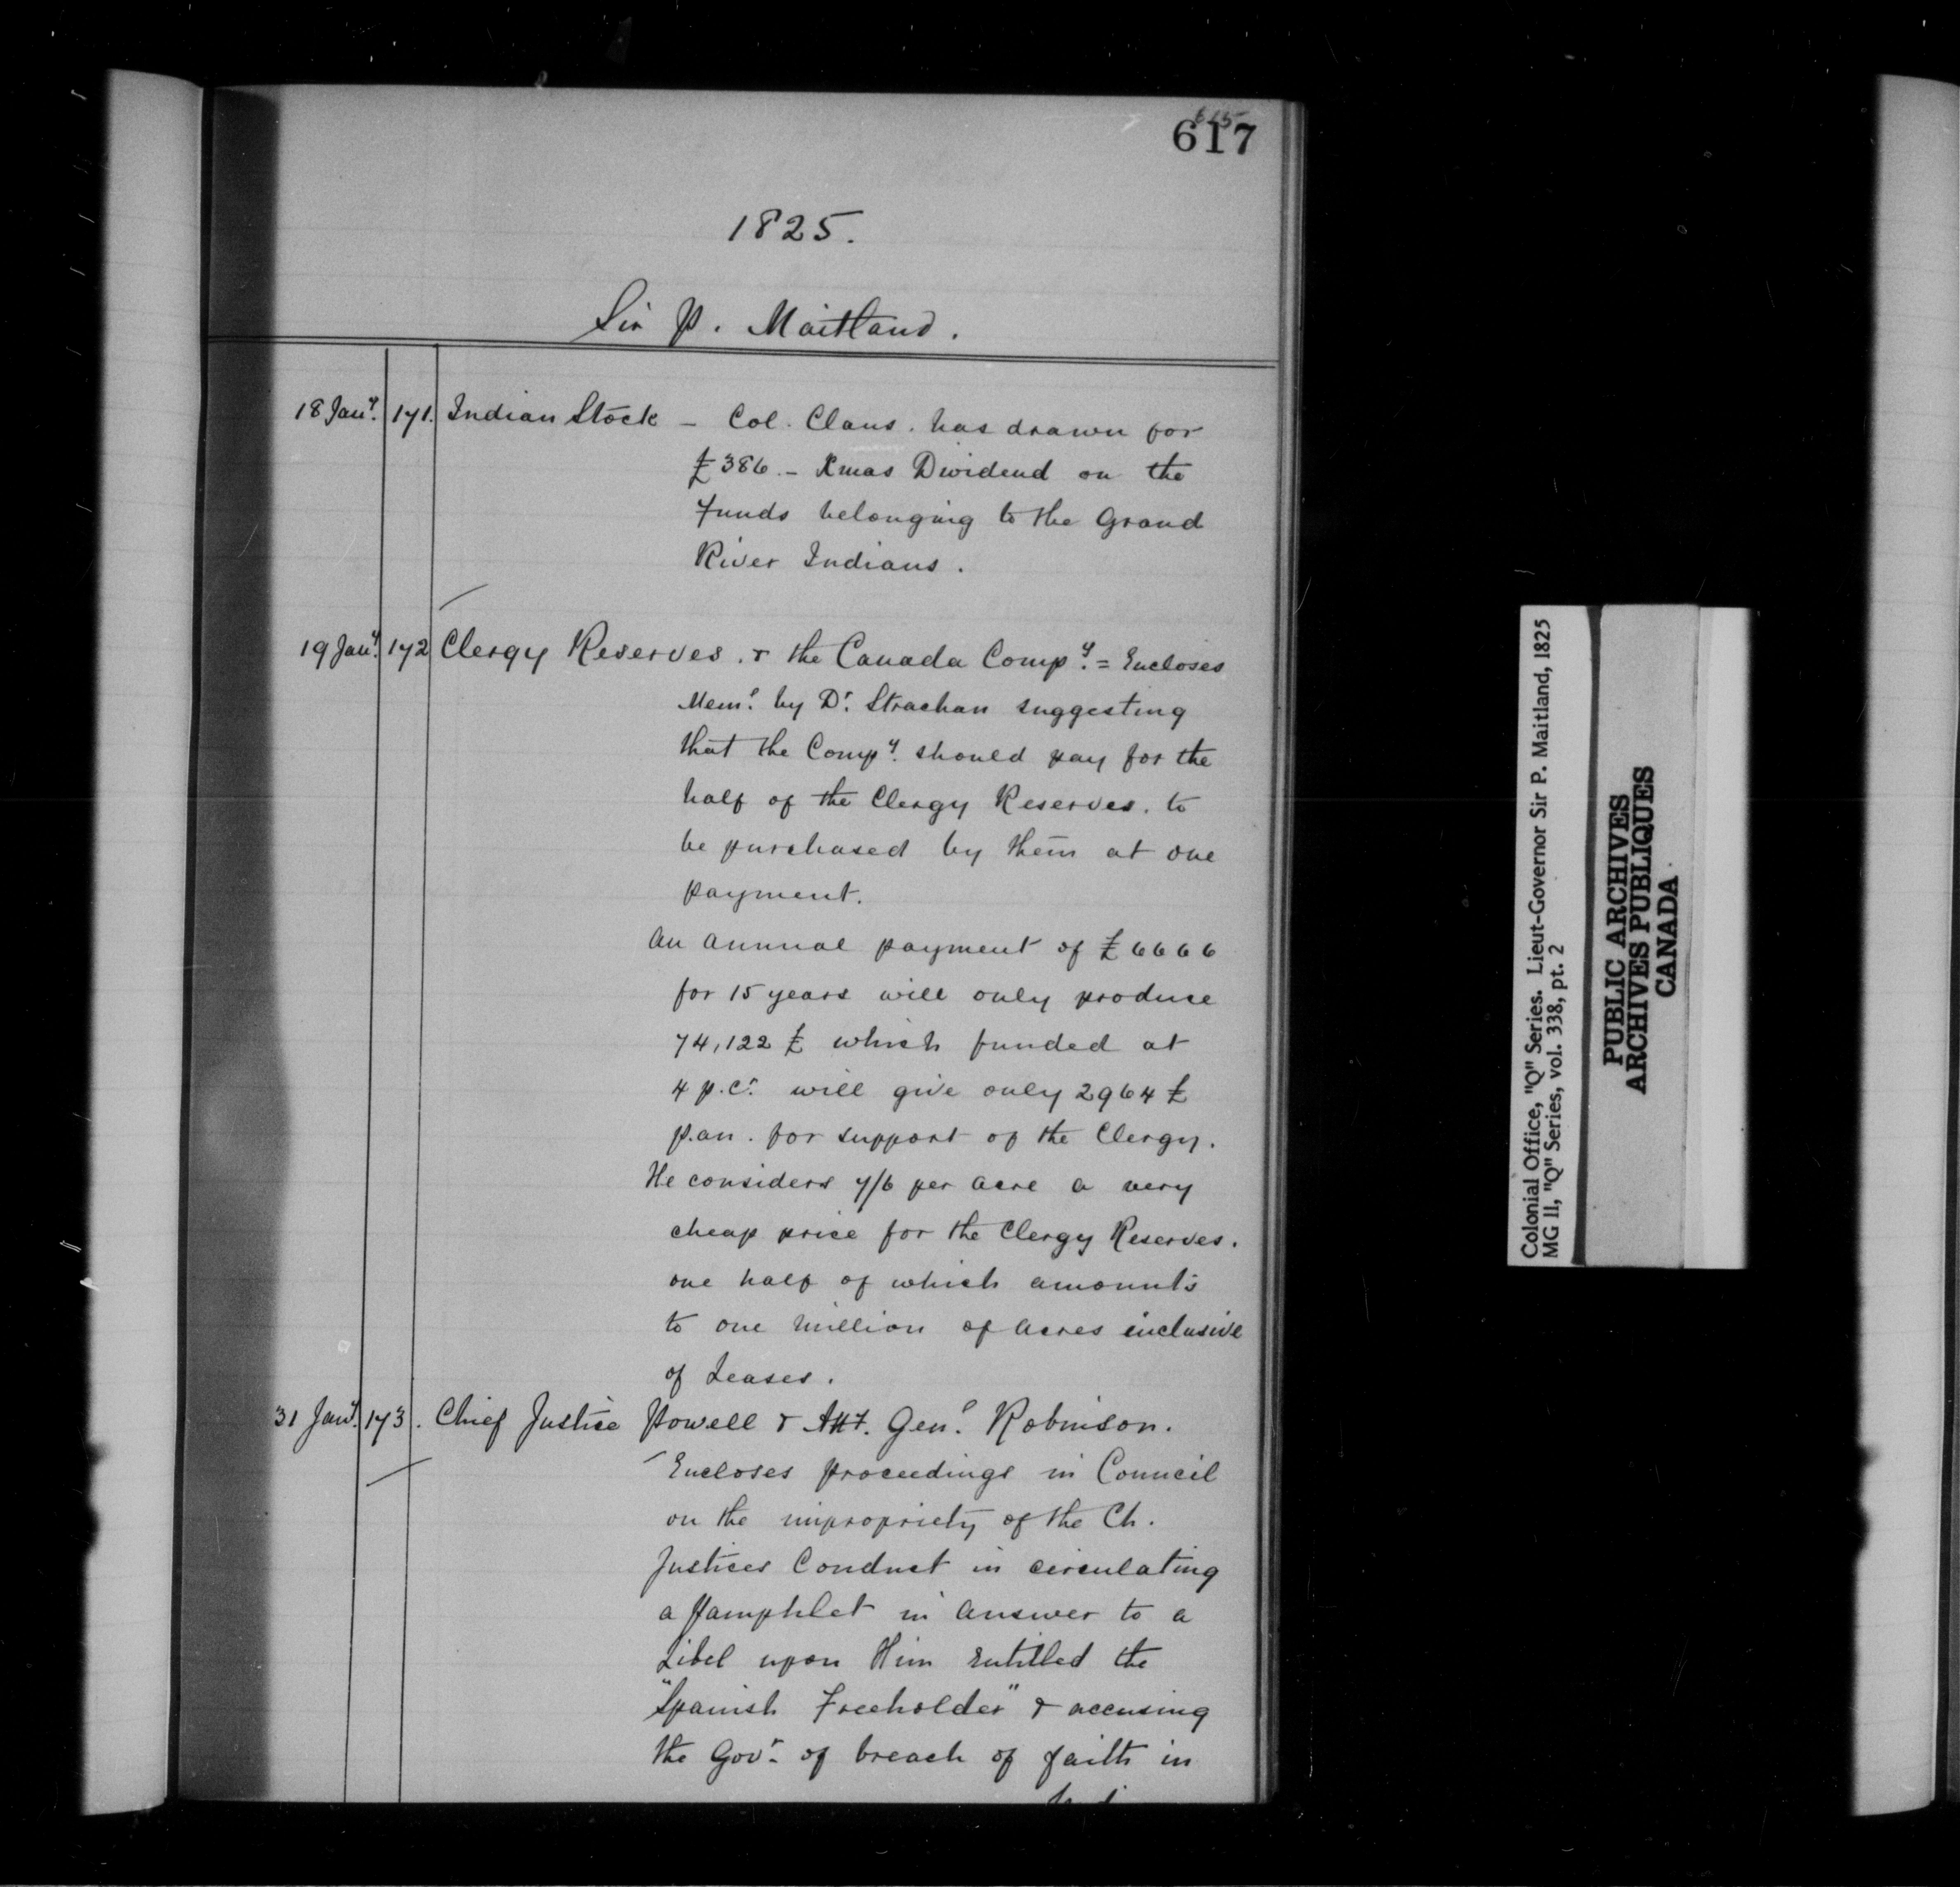 617
1825.
Sir P. Maitland.
18 Jany. 171. Indian Stock - Col. Claus. has drawn for
£386.- Xmas Dividend on the
Funds belonging to the Grand
River Indians.
19 Jany. 172 Clergy Reserves. & the Canada Compy. = Encloses
Meml. by Dr. Strachan suggesting
that the Compy. should pay for the
half of the Clergy Reserves. to
be purchased by them at one
payment.
An annual payment of £6666
for 15 years will only produce
74,122 £ which funded at
4 p.ct. will give only 2964 £
p.an. for support of the Clergy.
He considers 7/6 per acre a very
cheap price for the Clergy Reserves.
one half of which amounts
to one million of acres inclusive
of Leases.
31 Jany. 173. Chief Justice Powell & Att. Genl. Robinson.
Encloses proceedings in Council
on the impropriety of the Ch.
Justices Conduct in circulating
a Pamphlet in answer to a
Libel upon Him entitled the
"Spanish Freeholder" & accusing
the Govr. of breach of faith in
Colonial Office, "Q" Series. Lieut-Governor Sir P. Maitland, 1825
MG 11, "Q" Series, vol. 338, pt. 2
PUBLIC ARCHIVES
ARCHIVES PUBLIQUES
CANADA